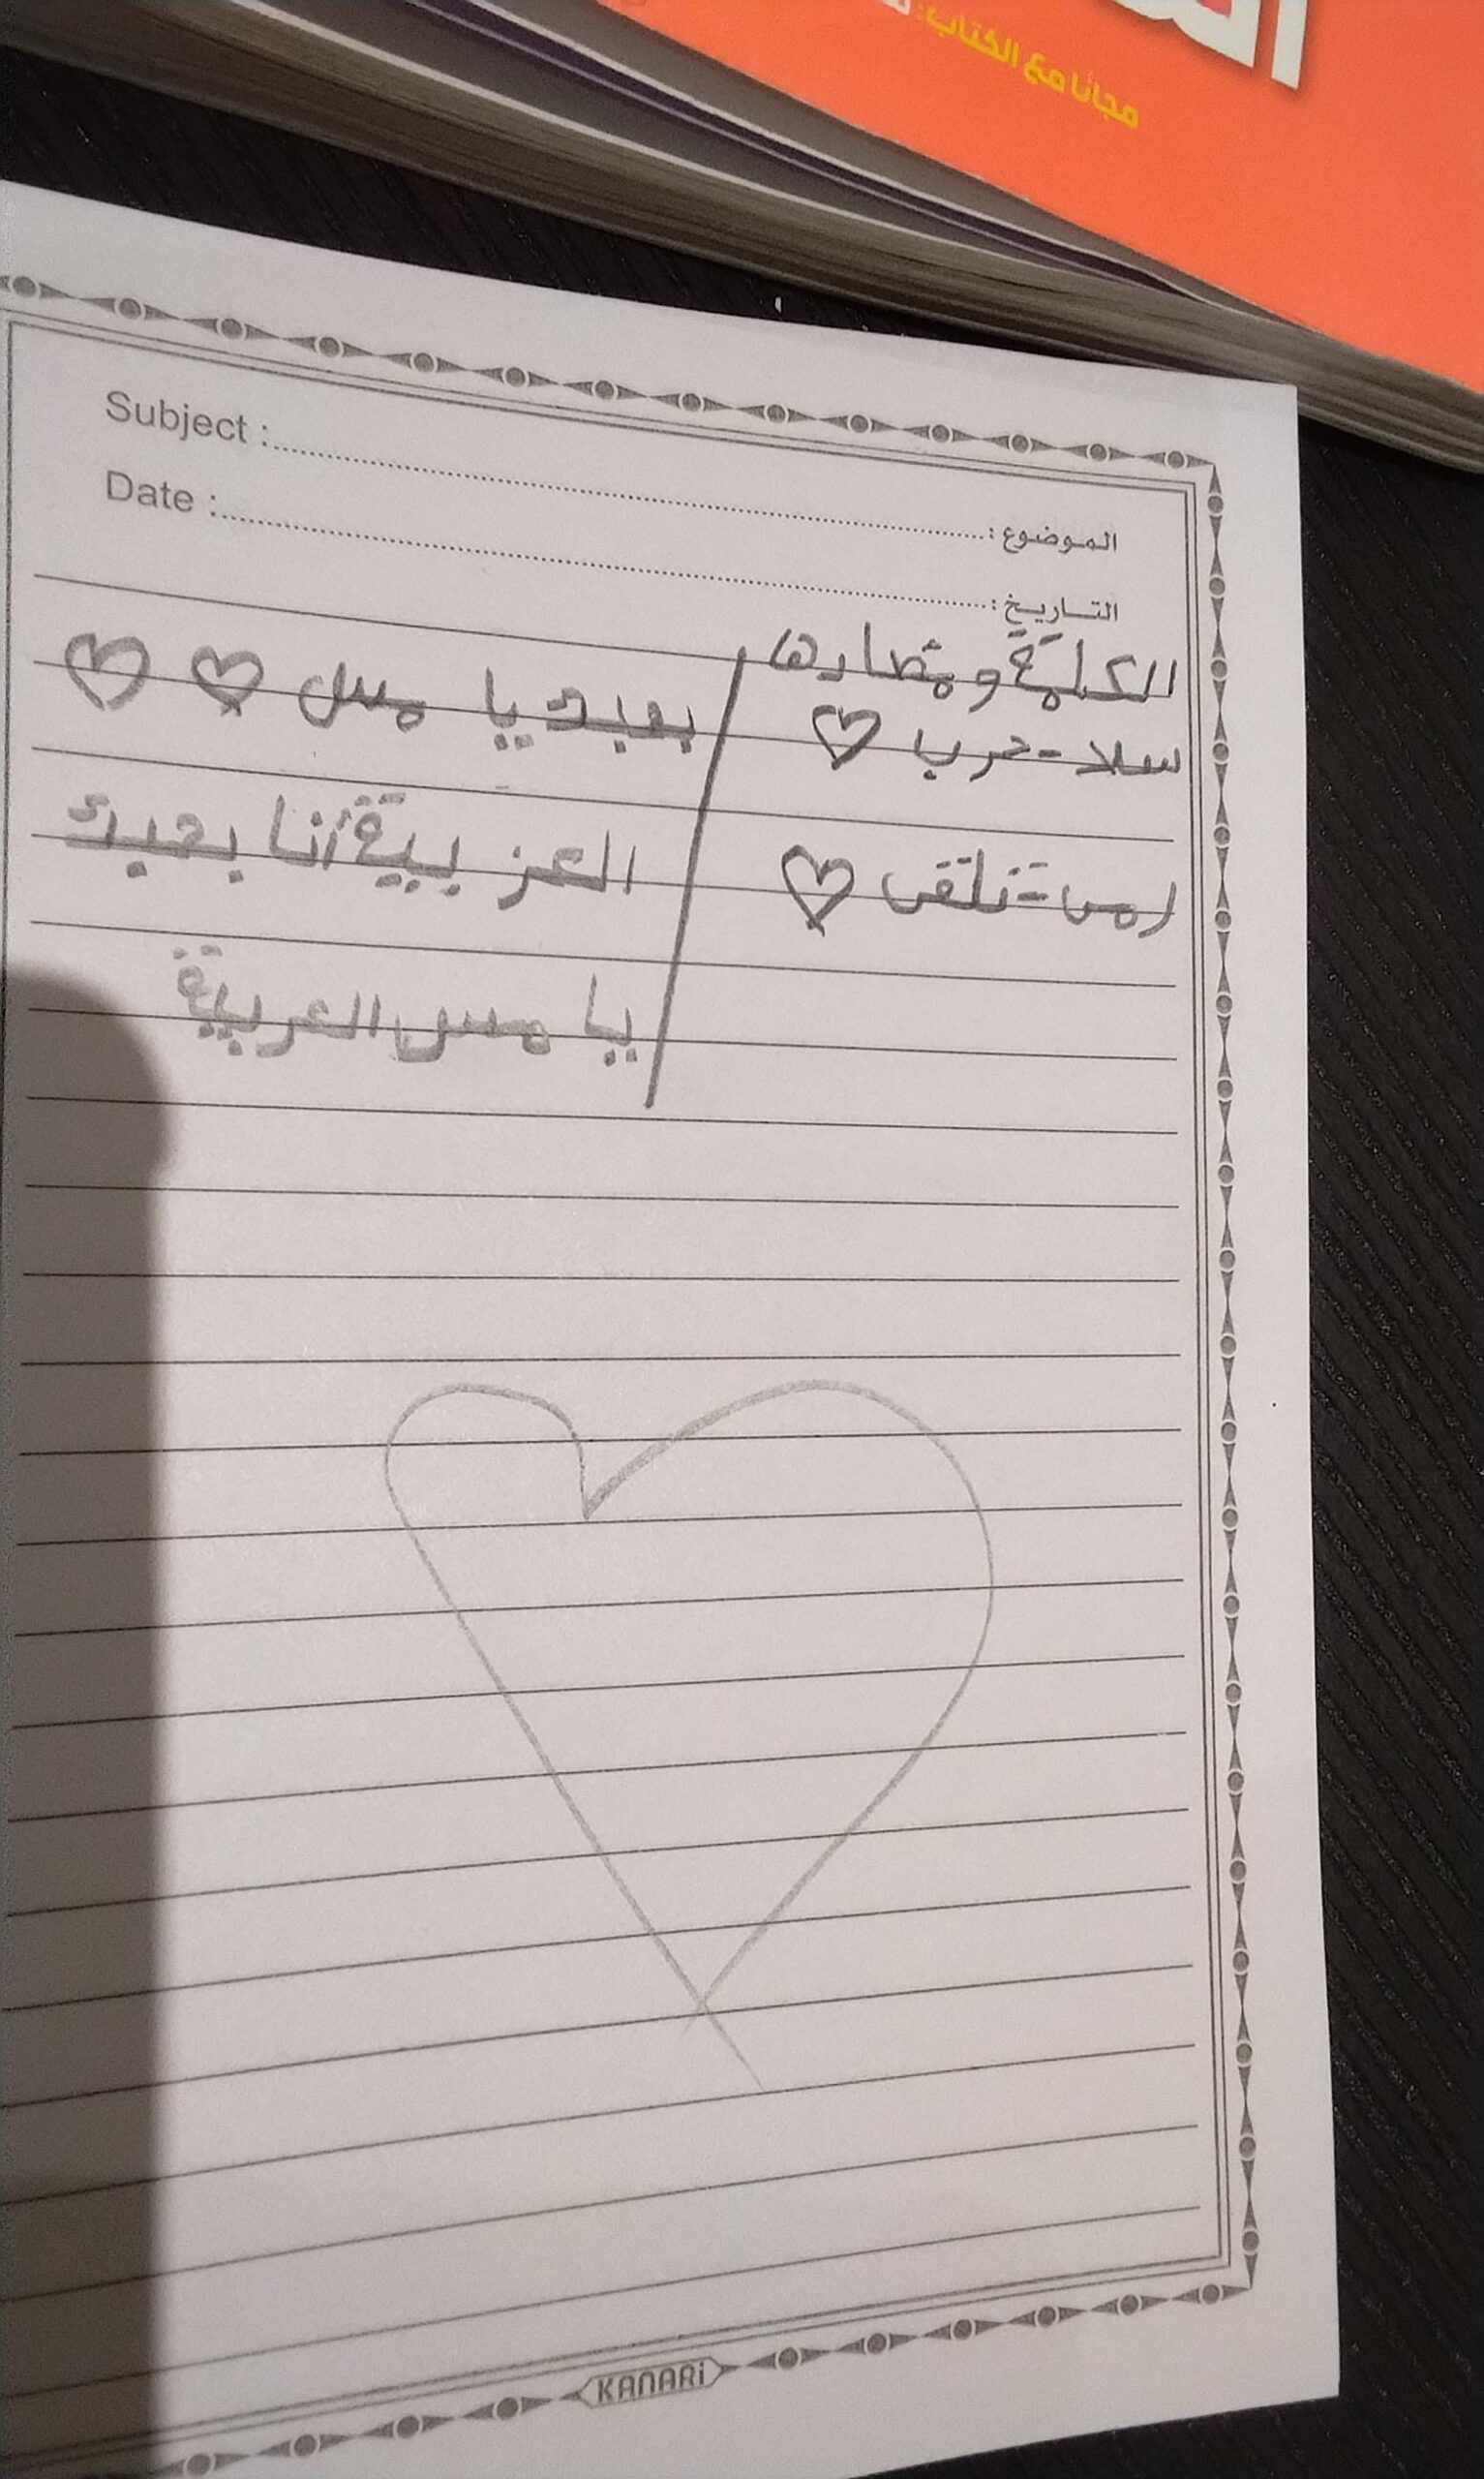 مجانا مع الكتاب:
Subject : الموضوع :
Date : التاريخ :
الكلمة ومضادها
سلا - حرب
رمى = تلقى
بحبك يا مس
العز بية أنا بحبك
يا مس العربية
KANARi